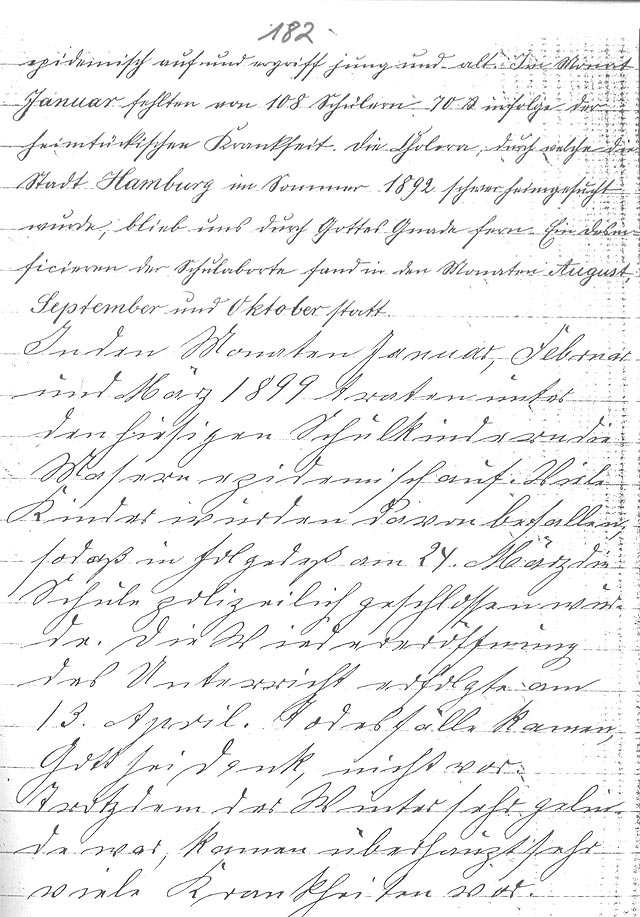 182
epidemisch auf und ergriff jung und alt. Im Monat
Januar fehlten von 108 Schülern 70 infolge der
heimtückischen Krankheit. Die Cholera, durch welche die
Stadt Hamburg im Sommer 1892 schwer heimgesucht
wurde, blieb uns durch Gottes Gnade fern. Ein desin-
ficieren der Schulaborte fand in den Monaten August,
September und Oktober statt.
In den Monaten Januar, Februar
und März 1899 traten unter
den hiesigen Schulkindern die
Masern epidemisch auf. Viele
Kinder wurden davon befallen,
sodaß infolgedeß am 24. März die
Schule polizeilich geschlossen wur-
de. Die Wiedereröffnung
des Unterricht erfolgte am
13. April. Todesfälle kamen,
Gott sei Dank, nicht vor.
Trotzdem der Winter sehr gelin-
de war, kamen überhaupt sehr
viele Krankheiten vor.